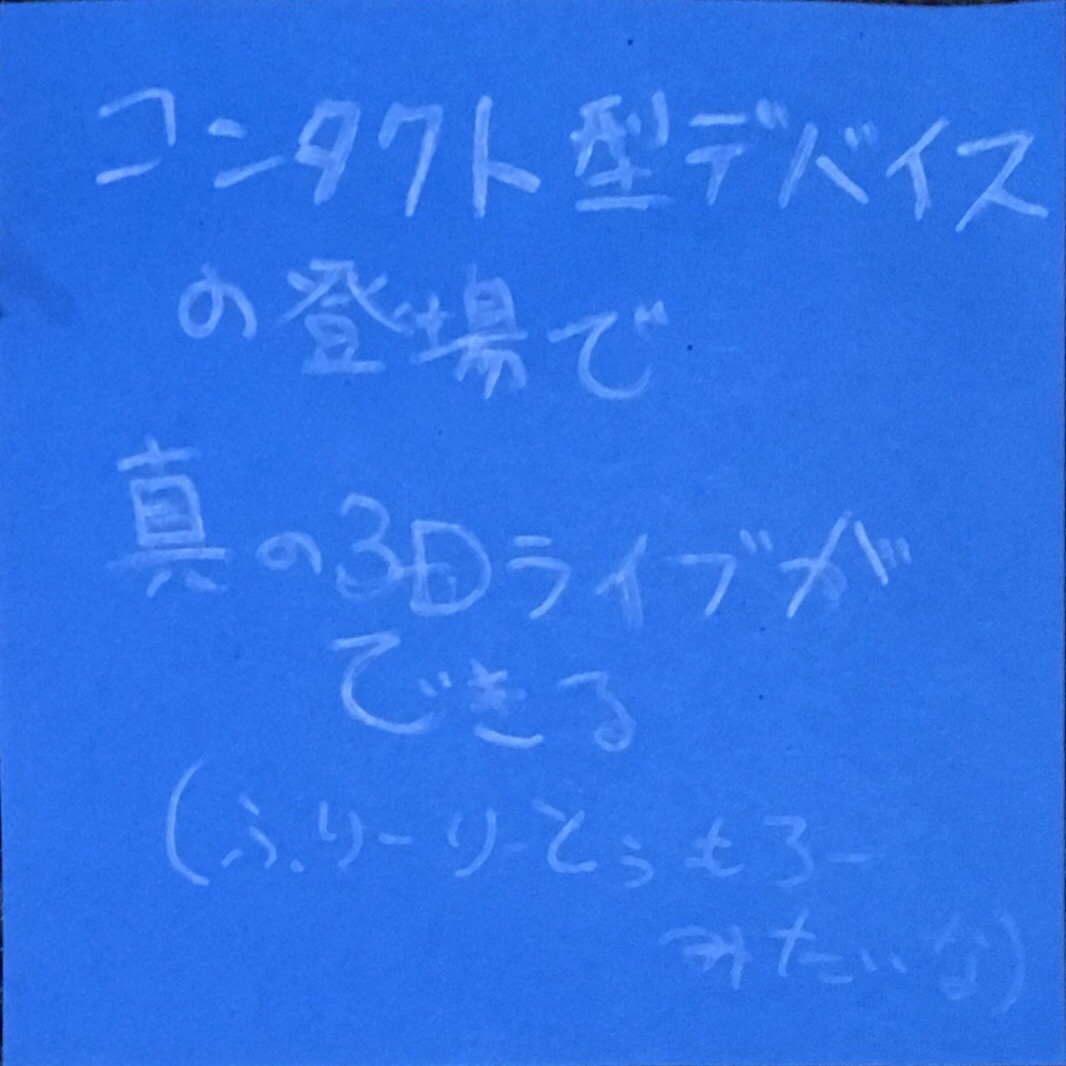 コンタクト型デバイス
の登場で
真の3Dライブが
できる
(ふりーりーとぅもろー
みたいな)